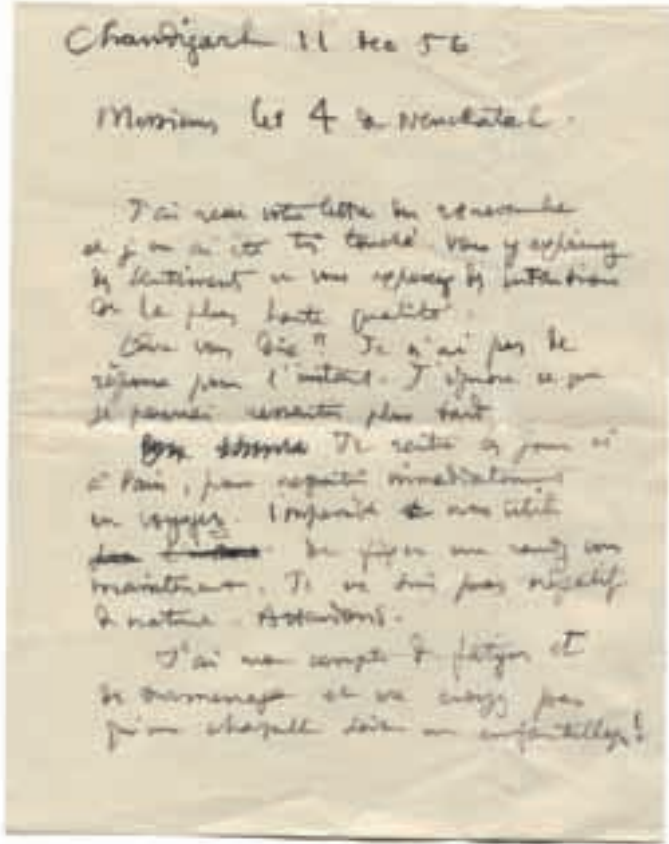 Chandigarh 11 dec 56
Messieurs les 4 de Neuchatel.
J'ai reçu votre lettre du 29 novembre
et j'en ai été très touché. Vous y exprimez
des sentiments et vous exposez des intentions
de la plus haute qualité.
vous dire? Je n'ai pas de
réponse pour l'instant. J'ignore ce que
je pourrai ressentir plus tard
Je rentre ces jours ci
à Paris, pour repartir immédiatement
en voyages.
de fixer un rendez vous
maintenant. Je ne suis pas négatif
de nature. Attendons.
J'ai mon compte de fatigues et
de et ne croyez pas
qu'une chapelle soit un enfantillage!